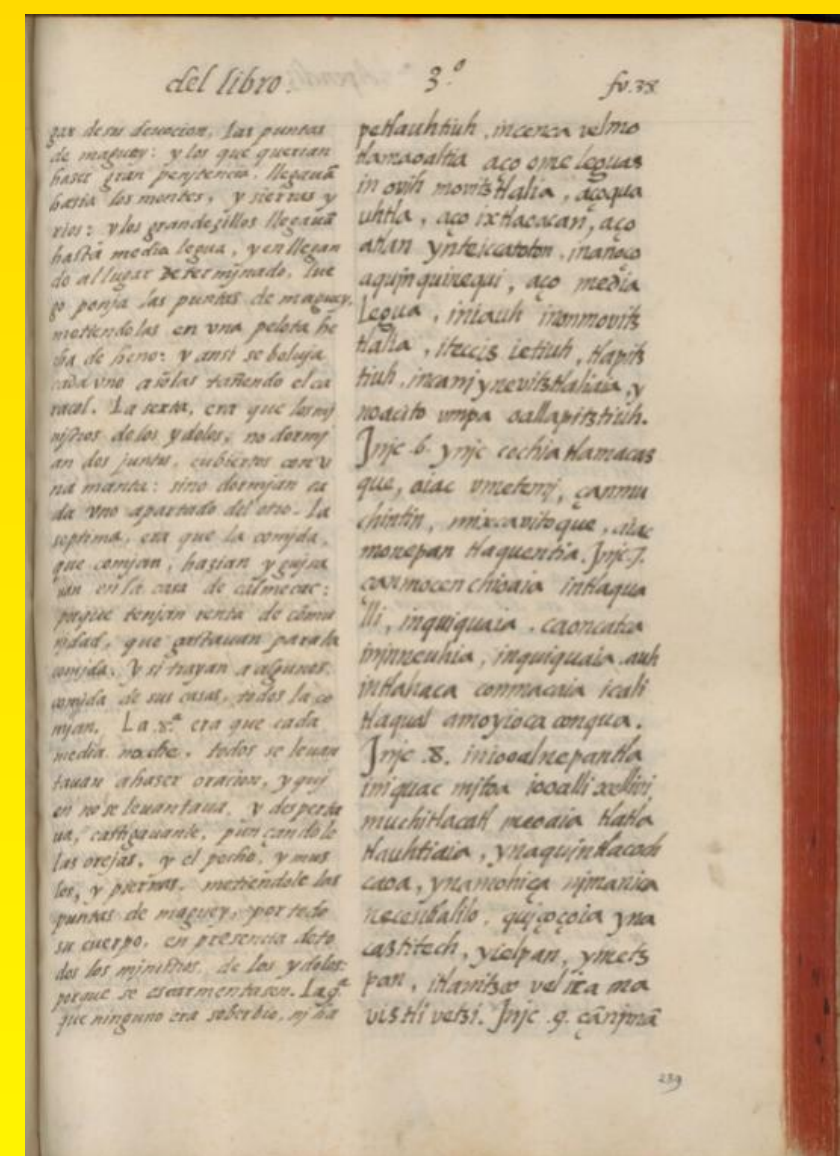 del libro. 3.º fo. 38.
gar de su deuocion, las puntas
de maguey: y los que querian
hazer gran penjtencia, llegauā
hasta los montes, y sierras y
rios: y los grandezillos llegauā
hasta media legua, y en llegan
do al lugar determjnado, lue
go ponja las puntas de maguey,
metiendolas en vna pelota he
cha de heno: y ansi se boluja
cada vno a solas tañendo el ca
racol. La sexta, era que los mj
njstros de los ydolos, no dormj
an dos juntos, cubiertos con v
na manta: sino dormjan ca
da vno apartado del otro. La
septima, era que la comjda,
que comjan, hazian y gujsa
uan en la casa de calmecac:
porque tenjan renta de comu
njdad, que gastauan para la
comjda. Y si trayan a algunos
comjda de sus casas, todos la co
mjan. La .8.ª era que cada
media noche, todos se leuan
tauan a hazer oracion, y quj
en no se leuantaua, y desperta
ua, castigauanle, punçandole
las orejas, y el pecho, y mus
los, y piernas, metiendole las
puntas de maguey, por todo
su cuerpo, en presencia de to
dos los mjnistros, de los ydolos:
porque se escarmentasen. La .9.ª
que ninguno era soberbio, nj ha
petlauhtiuh, incenca velmo
tlamaoaltia aço ome leguas
in ovih movitztlalia, açoqua
uhtla, aço ixtlacacan, aço
atlan ynteiccatoton, inañoço
aquin quinequi, aço media
legua, iniauh inonmovitz
tlalia, iteccis ietiuh, tlapitz
tiuh, incanj ynevitztlaliaia, y
noacito vmpa oallapitztiuh.
Jnjc .6. ynjc cochia tlamacaz
que, aiac vmetemj, çanmu
chintin, mixcavitoque, aiac
monepan tlaquentia. Jnjc .7.
çanmocen chioaia intlaqua
lli, inquiquaia, caoncatca
injnneuhia, inquiquaia. auh
intlahaca conmacaia icali
tlaqual amoyioca conqua.
Jnjc .8. iniooalnepantla
iniquac mjtoa iooalli xelivi,
muchitlacatl meoaia tlatla
tlauhtiaia, ynaquin tlacoch
caoa, ynamohiça njmanica
necentlalilo, quiçoçoia yna
caztitech, yielpan, ymetz
pan, itlanitzco velica ma
viztli vetzi. Jnjc .9. çānjmā
239